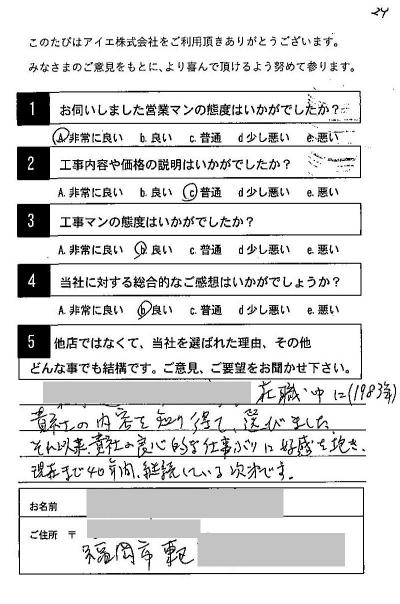 24
このたびはアイエ株式会社をご利用頂きありがとうございます。
みなさまのご意見をもとに、より喜んで頂けるよう努めて参ります。
1 お伺いしました営業マンの態度はいかがでしたか？
A.非常に良い b.良い c.普通 d少し悪い e.悪い
2 工事内容や価格の説明はいかがでしたか？
A.非常に良い b.良い c普通 d少し悪い e.悪い
3 工事マンの態度はいかがでしたか？
A.非常に良い b良い c.普通 d少し悪い e.悪い
4 当社に対する総合的なご感想はいかがでしょうか？
A.非常に良い b良い c.普通 d少し悪い e.悪い
5 他店ではなくて、当社を選ばれた理由、その他
どんな事でも結構です。ご意見、ご要望をお聞かせ下さい。
在職中に(1983年)
貴社の内容を知り得て、選びました。
それ以来、貴社の良心的な仕事ぶりに好感を抱き、
現在まで40年間、継続している次第です。
お名前
ご住所 〒
福岡市東区